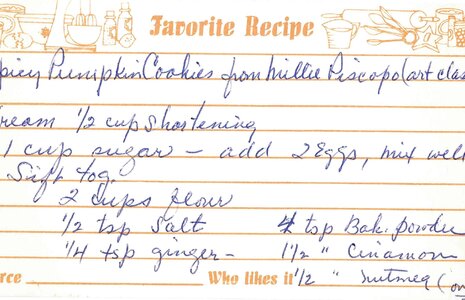 Favorite Recipe
picy Pumpkin Cookies from Millie Piscopo (art clas
ream 1/2 cup Shortening
1 cup sugar - add 2 Eggs, mix well
Sift tog.
2 cups flour
1/2 tsp Salt 4 tsp Bak. powder
1/4 tsp ginger - 1 1/2 " Cinamon
rce Who likes it 1/2 " nutmeg (on